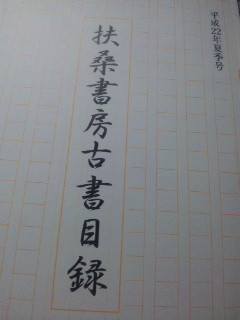 平成22年夏季号
扶桑書房古書目録